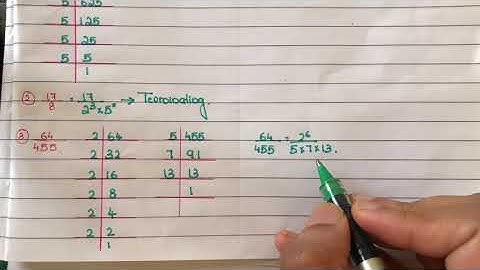 5 | 625
5 | 125
5 | 25
5 | 5
1
② 17/8 = 17/2³×5⁰ → Terminating.
③ 64/455
2 | 64
2 | 32
2 | 16
2 | 8
2 | 4
2 | 2
1
5 | 455
7 | 91
13 | 13
1
64/455 = 2⁶/5×7×13.